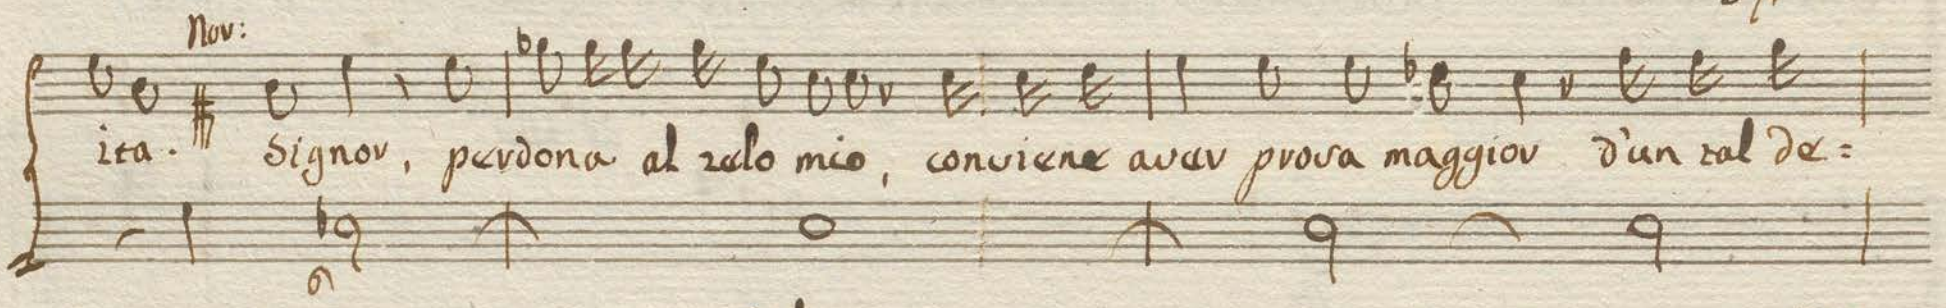 Nor:
ita. Signor, perdona al zelo mio, conviene aver prova maggior d'un tal de=
6